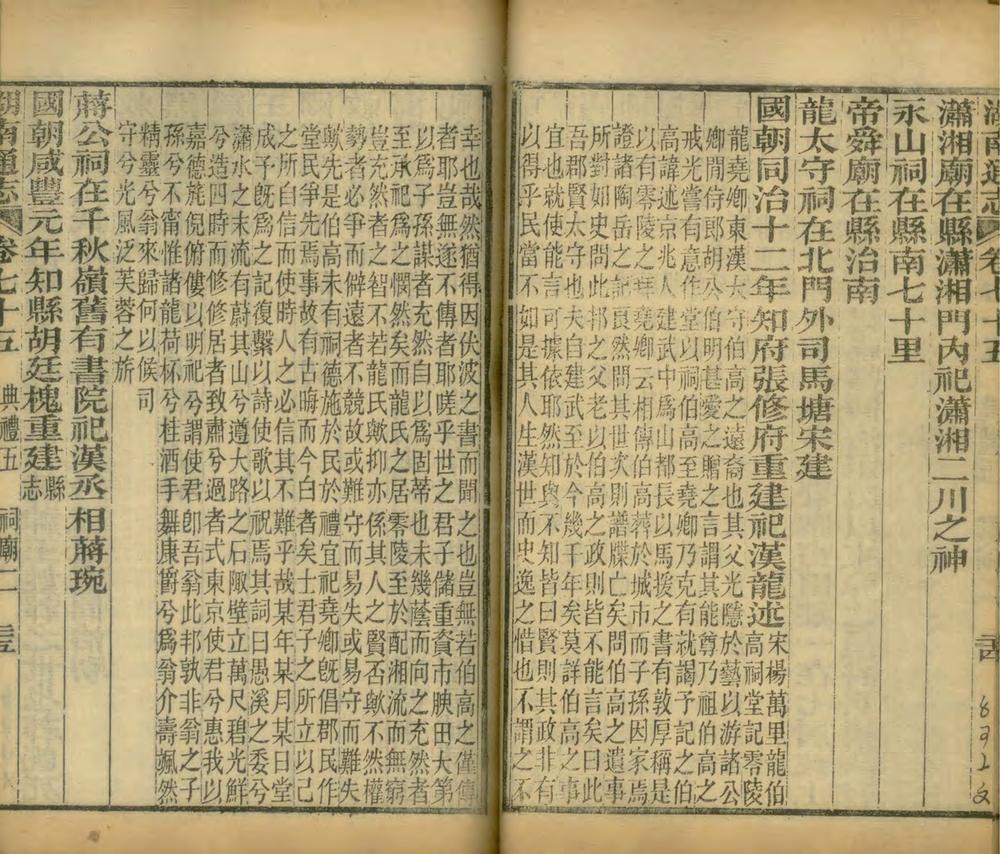 湖南通志 卷七十五
瀟湘廟在縣瀟湘門內祀瀟湘二川之神
永山祠在縣南七十里
帝舜廟在縣治南
龍太守祠在北門外司馬塘宋建
國朝同治十二年知府張修府重建祀漢龍述 宋楊萬里龍伯
高祠堂記零陵
龍堯卿東漢太守伯高之遠裔也其父光隱於藝以游諸公
卿間侍郎胡公伯明甚愛之贈之言謂其能尊乃祖伯高之
戒光嘗有意作堂以祠伯高至堯卿乃克有就謁予記之伯
高諱述京兆人建武中爲山都長以馬援之書有敦厚稱是
以有零陵之拜堯卿云相傳伯高葬於城市而子孫因家焉
證諸陶岳之記良然問其世次則譜牒亡矣問伯高之遺事
所對如史問此邦之父老以伯高之政則皆不能言矣曰此
吾郡賢太守也夫自建武至於今幾千年矣莫詳伯高之事
宜也就使能言可據依耶然知與不知皆曰賢則其政非有
以得乎民當不如是其人生漢世而史逸之惜也不謂之不
幸也哉然猶得因伏波之書而聞之也豈無若伯高之僅傳
者耶豈無遂不傳者耶嗟乎世之君子儲重資市腴田大第
以爲子孫謀者充然自以爲固蒂也未幾蔭而向之充然者
至承祀爲之憫然矣而龍氏之居零陵至於配湘流而無窮
豈充然者之智不若龍氏歟抑亦係其人之賢否歟不然權
勢者必爭而僻遠者不競故或難守而易失或易守而難失
歟先是伯高未有祠德施於民於禮宜祀堯卿旣倡郡民作
堂民爭先焉事故有古晦而今白者矣士君子之所立以己
之所自信而使時人之必信其不難乎哉某年某月某日堂
成予旣爲之記復繫以詩使歌以祝焉其詞曰愚溪之委兮
瀟水之末流有蔚其山兮遵大路之石陬壁立萬尺碧光鮮
兮造四時而修修居者致肅兮過者式東京使君兮惠我以
嘉德旄倪俯僂以明祀兮謂使君卽吾翁此邦孰非翁之子
孫兮不甯惟諸龍荷杯兮桂酒手舞康爵兮爲翁介壽颯然
精靈兮翁來歸何以候司
守兮光風泛芙蓉之旅
蔣公祠在千秋嶺舊有書院祀漢丞相蔣琬
國朝咸豐元年知縣胡廷槐重建 縣志
湖南通志 卷七十五 典禮五 祠廟二